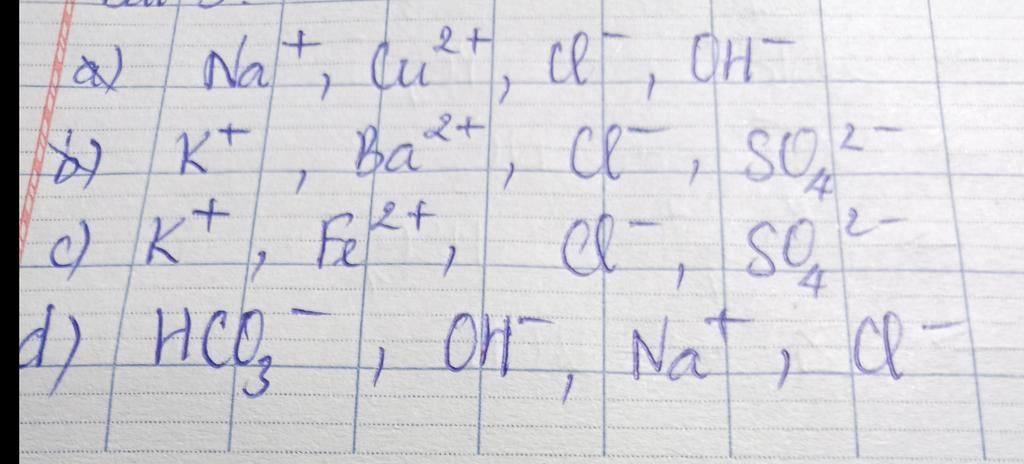 a) Na⁺, Cu²⁺, Cl⁻, OH⁻
b) K⁺, Ba²⁺, Cl⁻, SO₄²⁻
c) K⁺, Fe²⁺, Cl⁻, SO₄²⁻
d) HCO₃⁻, OH⁻, Na⁺, Cl⁻